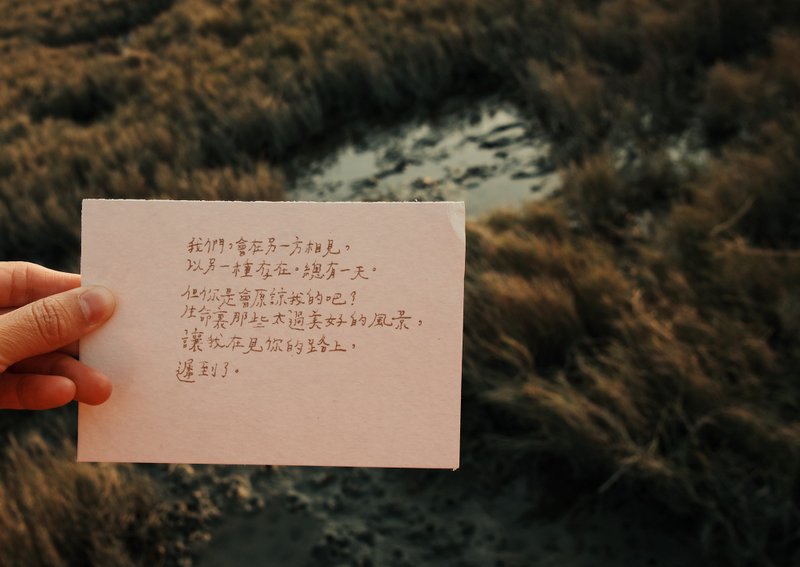 我們，會在另一方相見，
以另一種存在。總有一天。
但你是會原諒我的吧？
生命裏那些太過美好的風景，
讓我在見你的路上，
遲到了。